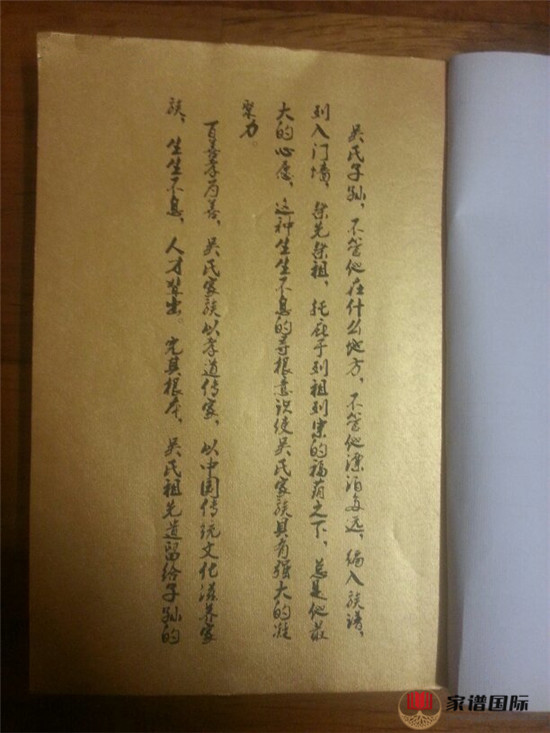 吴氏子孙、不管他在什么地方、不管他漂泊多远、编入族谱、
列入门墙、荣先荣祖、托庇于列祖列宗的福荫之下、总是他最
大的心愿、这种生生不息的寻根意识使吴氏家族具有强大的凝
聚力。
百善孝为善、吴氏家族以孝道传家、以中国传统文化滋养家
族、生生不息、人才辈出 究其根本、吴氏祖先遗留给子孙的
家谱国际